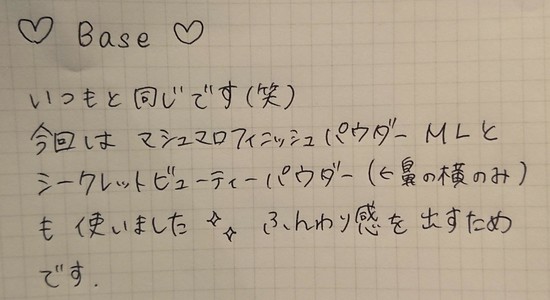 ♡ Base ♡
いつもと同じです(笑)
今回はマシュマロフィニッシュパウダーMLと
シークレットビューティーパウダー(←鼻の横のみ)
も使いました✨ふんわり感を出すため
です.